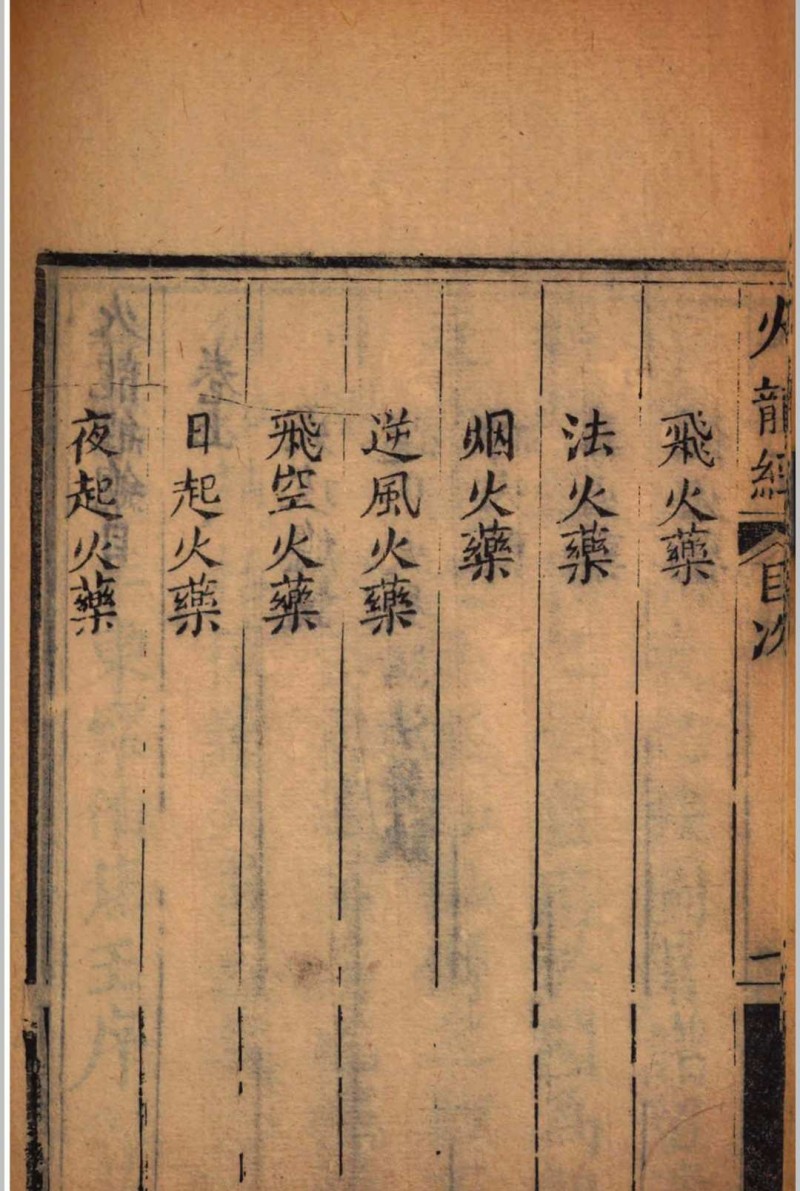 火龍經
目次
二
飛火藥
法火藥
烟火藥
逆風火藥
飛空火藥
日起火藥
夜起火藥